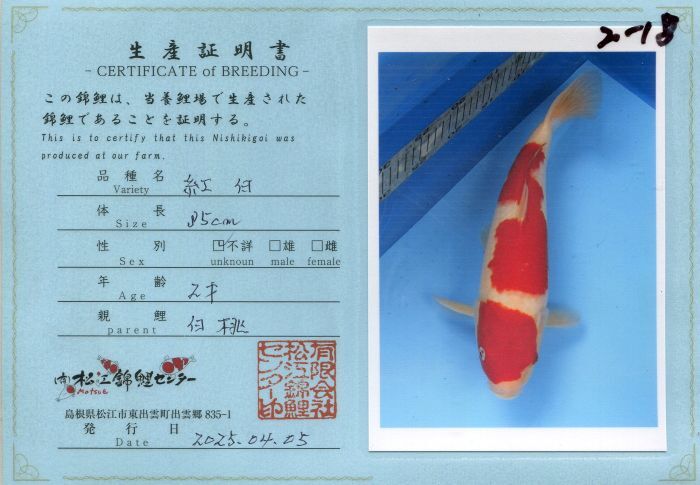 2-18
生産証明書
- CERTIFICATE of BREEDING -
この錦鯉は、当養鯉場で生産された
錦鯉であることを証明する。
This is to certify that this Nishikigoi was
produced at our farm.
品種名 紅白
Variety
体長 85cm
Size
性別 ☑不詳 □雄 □雌
Sex unknoun male female
年齢 2才
Age
親鯉 白桃
parent
(有)松江錦鯉センター
Matsue
有限会社
松江錦鯉
センター印
島根県松江市東出雲町出雲郷 835-1
発行日 2025.04.05
Date